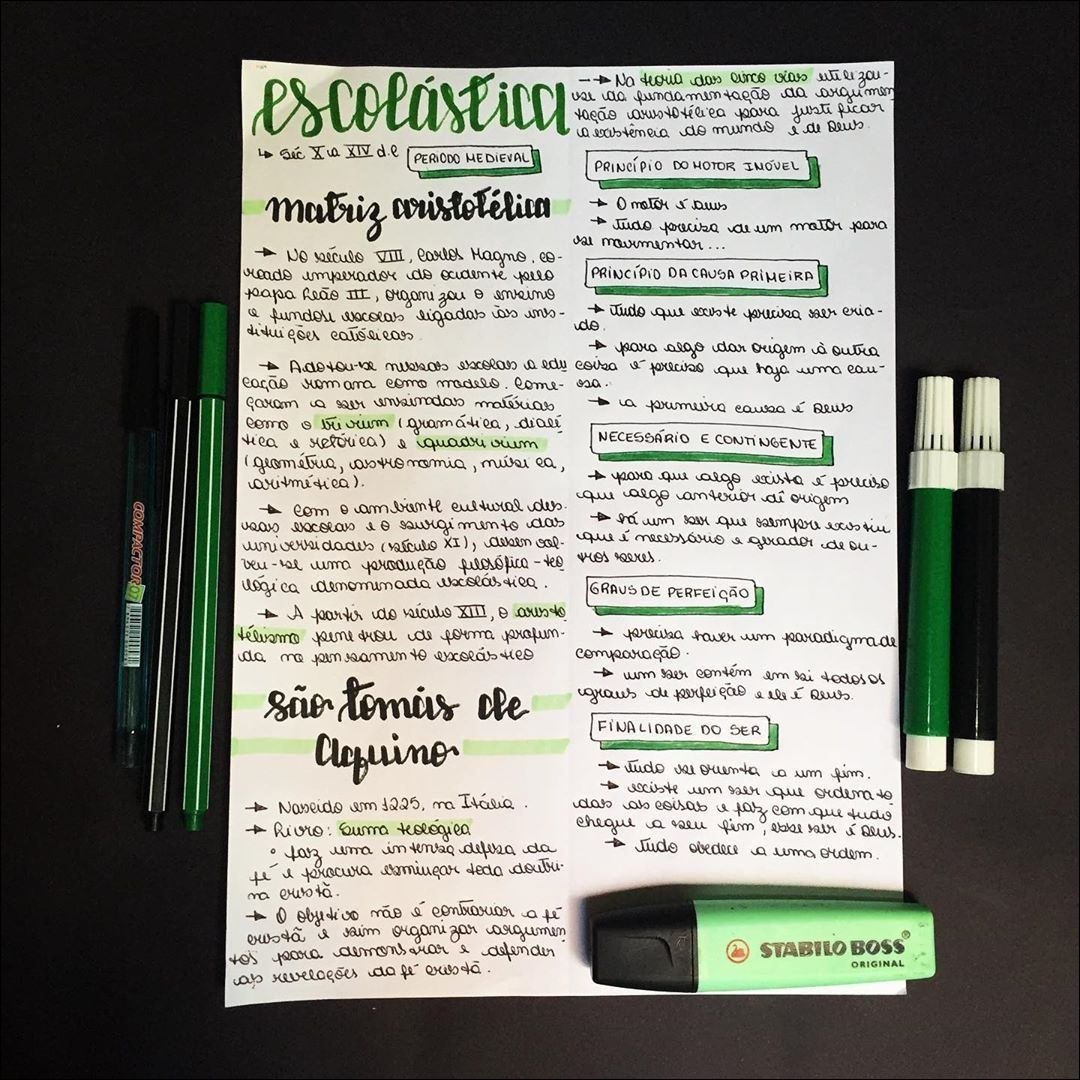 escolástica
↳ Séc X a XIV d.C PERIODO MEDIEVAL
matriz aristotélica
→ No século VIII, Carlos Magno, co-
roado imperador do ocidente pelo
papa Leão III, organizou o ensino
e fundou escolas ligadas às ins-
tituições católicas.
→ Adotou-se nessas escolas a edu
cação romana como modelo. Come-
çaram a ser ensinadas matérias
como o trivium (gramática, dialé
tica e retórica) e quadrivium
(geometria, astronomia, música,
aritmética).
→ Com o ambiente cultural des-
sas escolas e o surgimento das
universidades (século XI), desenvol
veu-se uma produção filosófica-teo
lógica denominada escolástica.
→ A partir do século XIII, o aristo
télismo penetrou de forma profun-
da no pensamento escolástico
são tomás de
Aquino
→ Nascido em 1225, na Itália.
→ Livro: Suma teológica
° faz uma intensa defesa da
fé e procura esmiuçar toda doutri-
na cristã.
→ O objetivo não é contrariar a fé
cristã e sim organizar argumen
tos para demonstrar e defender
as revelações da fé cristã.
→ Na teoria das cinco vias utilizou-
se da fundamentação da argumen
tação aristotélica para justificar
a existência do mundo e de Deus.
PRINCÍPIO DO MOTOR IMÓVEL
→ O motor é Deus
→ tudo precisa de um motor para
se movimentar...
PRINCÍPIO DA CAUSA PRIMEIRA
→ tudo que existe precisa ser cria-
do.
→ para algo dar origem à outra
coisa é preciso que haja uma cau-
sa.
→ a primeira causa é Deus
NECESSÁRIO E CONTINGENTE
→ para que algo exista é preciso
que algo anterior dê origem
→ há um ser que sempre existiu
que é necessário e gerador de ou-
tros seres.
GRAUS DE PERFEIÇÃO
→ precisa haver um paradigma de
comparação.
→ um ser contém em si todos os
graus de perfeição e ele é Deus.
FINALIDADE DO SER
→ tudo se orienta a um fim.
→ existe um ser que ordena to
das as coisas e faz com que tudo
chegue a seu fim, esse ser é Deus.
→ tudo obedece a uma ordem.
COMPACTOR 07
STABILO BOSS®
ORIGINAL